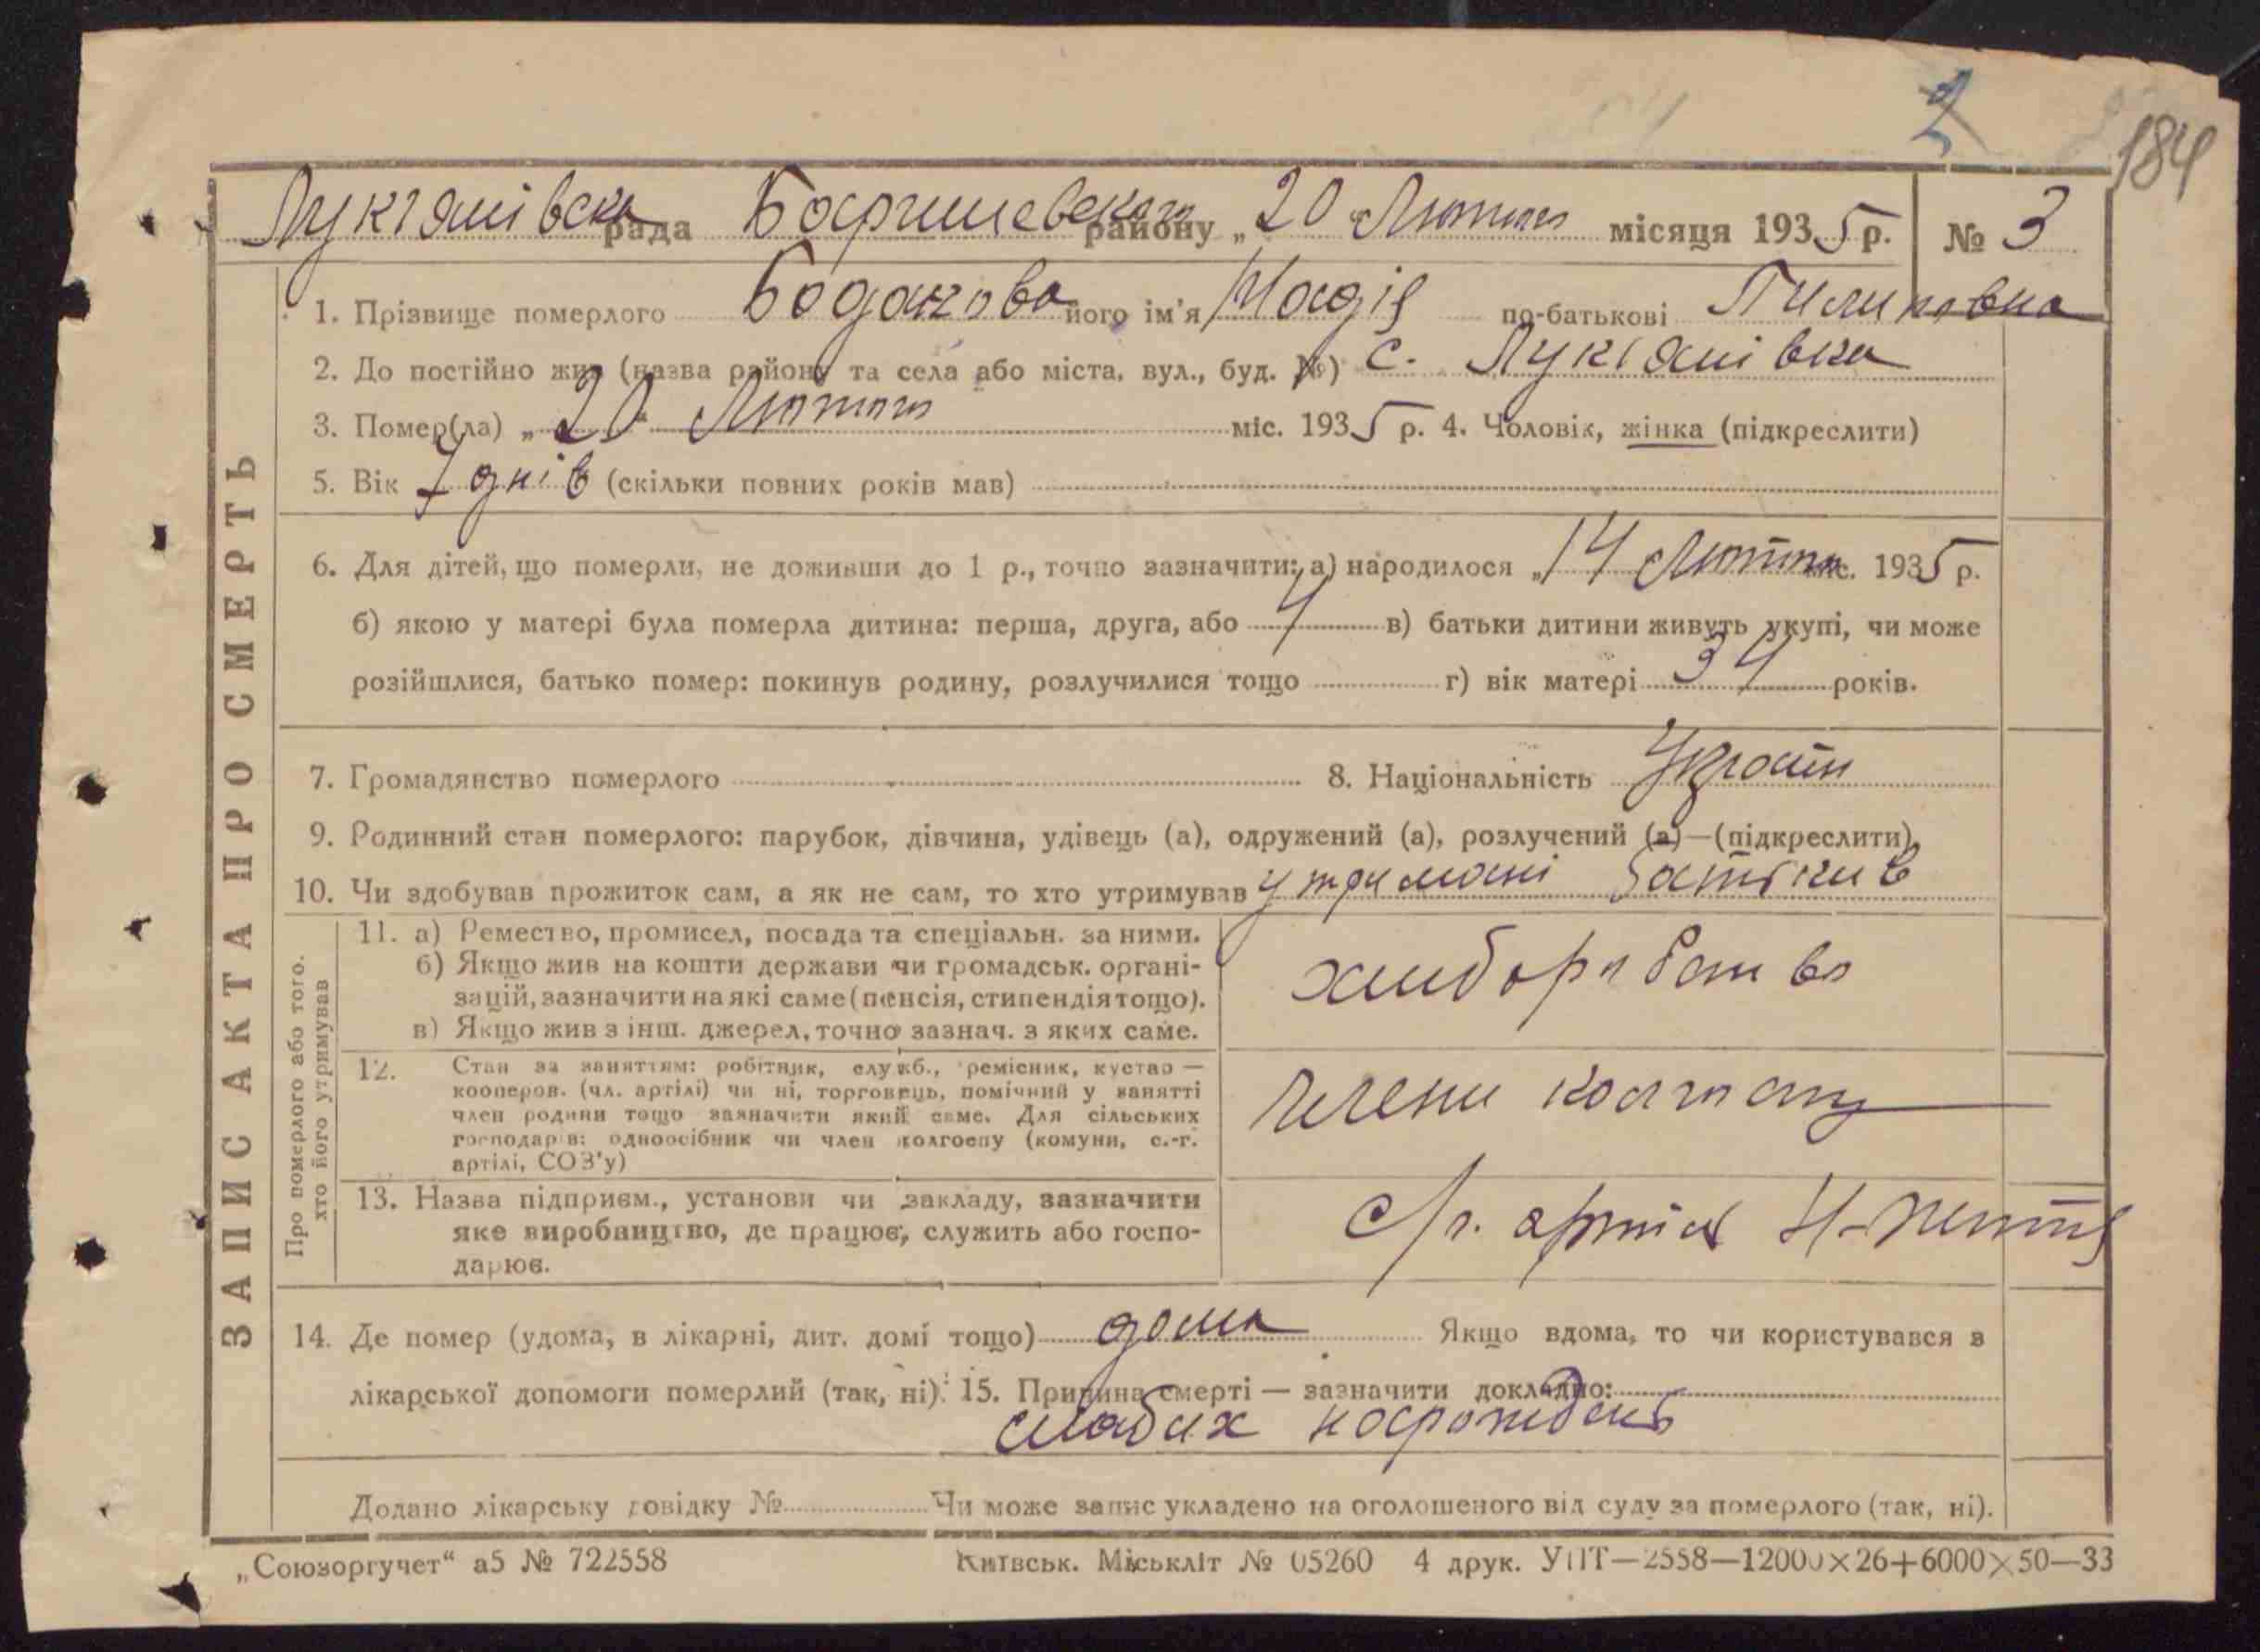 184
Лукіянівска рада Баришевского району „20“ Лютого місяця 1935 р. № 3
ЗАПИС АКТА ПРО СМЕРТЬ
1. Прізвище померлого його ім'я Надія по-батькові Пилиповна
2. Де постійно жив (назва району та села або міста, вул., буд. №) с. Лукіянівка
3. Помер(ла) „20“ Лютого міс. 1935 р. 4. Чоловік, жінка (підкреслити)
5. Вік 7 днів (скільки повних років мав)
6. Для дітей, що померли, не доживши до 1 р., точно зазначити: а) народилося „14 Лютого міс. 1935 р.
б) якою у матері була померла дитина: перша, друга, або 4 в) батьки дитини живуть укупі, чи може
розійшлися, батько помер: покинув родину, розлучилися тощо г) вік матері 34 років.
7. Громадянство померлого 8. Національність
9. Родинний стан померлого: парубок, дівчина, удівець (а), одружений (а), розлучений (а)—(підкреслити)
10. Чи здобував прожиток сам, а як не сам, то хто утримував утримані батьків
Про померлого або того.
хто його утримував
11. а) Ремество, промисел, посада та спеціальн. за ними.
б) Якщо жив на кошти держави чи громадськ. органі-
зацій, зазначити на які саме (пенсія, стипендія тощо).
в) Якщо жив з інш. джерел, точно зазнач. з яких саме.
хлиборобство
12. Стан за заняттям: робітник, служб., ремісник, кустар —
кооперов. (чл. артілі) чи ні, торговець, помічний у занятті
член родини тощо зазначити який саме. Для сільських
господарів: одноосібник чи член колгоспу (комуни, с.-г.
артілі, СОЗ'у)
члени колгоспу
13. Назва підприєм., установи чи закладу, зазначити
яке виробництво, де працює, служить або госпо-
дарює.
с/г. артіль
14. Де помер (удома, в лікарні, дит. домі тощо) дома Якщо вдома, то чи користувався в
лікарської допомоги померлий (так, ні). 15. Причина смерті — зазначити докладно:
Додано лікарську довідку № Чи може запис укладено на оголошеного від суду за померлого (так, ні).
„Союзоргучет“ а5 № 722558 Київськ. Міськліт № 05260 4 друк. УПТ—2558—12000×26+6000×50—33